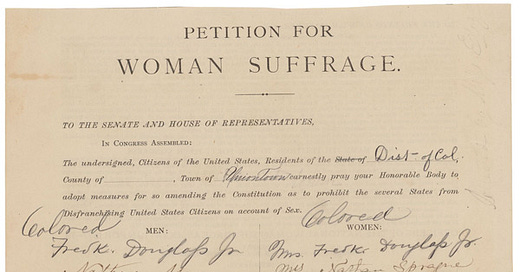 PETITION FOR
WOMAN SUFFRAGE.
TO THE SENATE AND HOUSE OF REPRESENTATIVES,
IN CONGRESS ASSEMBLED:
The undersigned, Citizens of the United States, Residents of the State of Dist. of Col,
County of, Town of Uniontown earnestly pray your Honorable Body to
adopt measures for so amending the Constitution as to prohibit the several States from
Disfranchising United States Citizens on account of Sex.
Colored Colored
MEN: WOMEN:
Fredk. Douglass Jr Mrs. Fredk Douglass Jr
Nathan Mrs Nathan Sprague